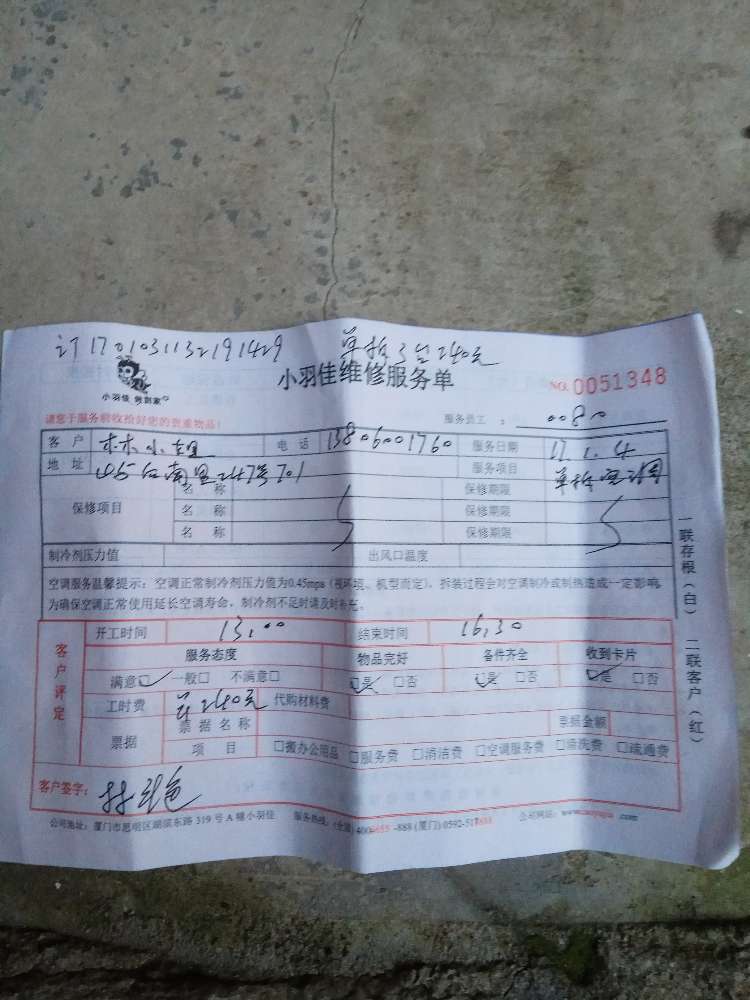 订1701031132191429 单拆3台240元
小羽佳 到家
小羽佳维修服务单 NO.0051348
请您于服务前收拾好您的贵重物品! 服务员工:0080
客户 林小姐 电话 13806001760 服务日期 17.1.4
地址 南里247号701 服务项目 单拆空调
保修项目 名称 保修期限
名称 保修期限
名称 保修期限
制冷剂压力值 出风口温度
空调服务温馨提示:空调正常制冷剂压力值为0.45mpa(视环境、机型而定),拆装过程会对空调制冷或制热造成一定影响,
为确保空调正常使用延长空调寿命,制冷剂不足时请及时补充。
客户评定 开工时间 13:00 结束时间 16:30
服务态度 物品完好 备件齐全 收到卡片
满意☑ 一般□ 不满意□ ☑是 □否 ☑是 □否 ☑是 □否
工时费 240元 代购材料费
票据 票据名称 票据金额
项目 □搬办公用品 □服务费 □清洁费 □空调服务费 □清洗费 □疏通费
客户签字: 林
公司地址:厦门市思明区湖滨东路319号A幢小羽佳 服务热线:(全国)400 -888(厦门)0592-51 公司网站:www. .com
一联存根(白) 二联客户(红)